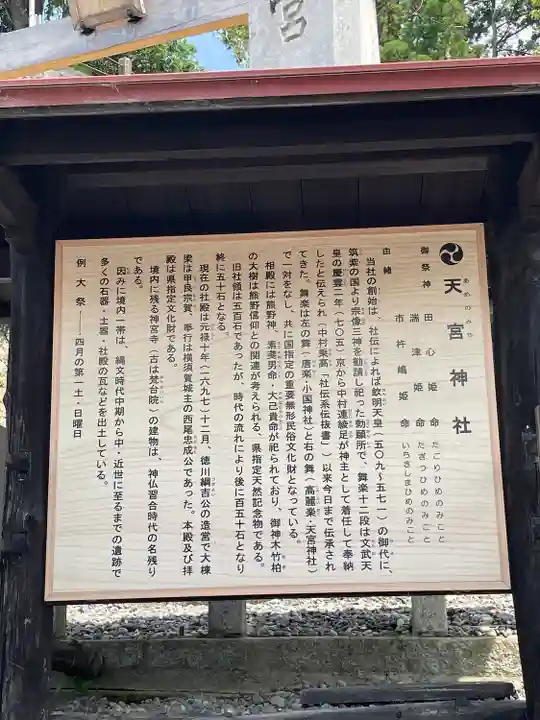 宮
天宮神社
あめのみや
御祭神
田心姫命 たごりひめのみこと
湍津姫命 たぎつひめのみこと
市杵嶋姫命 いちきしまひめのみこと
由緒
当社の創始は、社伝によれば欽明天皇（五〇九〜五七一）の御代に、
筑紫の国より宗像三神を勧請し祀った勅願所で、舞楽十二段は文武天
皇の慶雲二年（七〇五）京から中村連綾足が神主として着任して奉納
したと伝えられ（中村乗高「社伝系伝抜書」）以来今日まで伝承され
てきた。舞楽は左の舞（唐楽・小国神社）と右の舞（高麗楽・天宮神社）
で一対をなし、共に国指定の重要無形民俗文化財となっている。
相殿には熊野神、素戔男命・大己貴命が祀られており、御神木竹柏
の大樹は熊野信仰との関連が考えられる、県指定天然記念物である。
旧社領は五百石であったが、時代の流れにより後に百五十石となり
終に五十石となる。
現在の社殿は元禄十年（一六九七）十二月、徳川綱吉公の造営で大棟
梁は甲良宗賀、奉行は横須賀城主の西尾忠成公であった。本殿及び拝
殿は県指定文化財である。
境内に残る神宮寺（古は梵台院）の建物は、神仏習合時代の名残り
である。
因みに境内一帯は、縄文時代中期から中・近世に至るまでの遺跡で
多くの石器・土器・社殿の瓦などを出土している。
例大祭――四月の第一土・日曜日